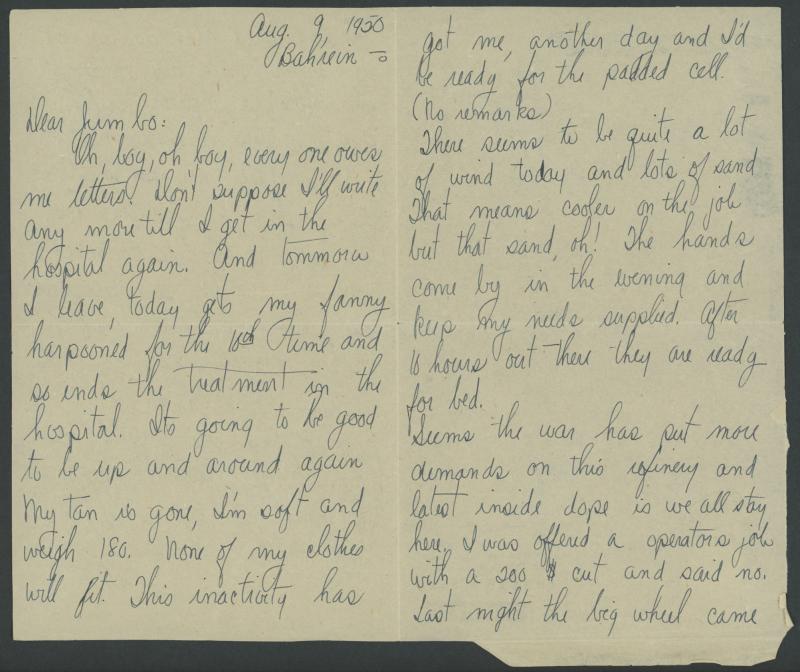 Aug. 9, 1950
Bahrein =
Dear Jumbo:
Oh, boy, oh boy, every one owes
me letters. Don't suppose I'll write
any more till I get in the
hospital again. And tommorw
I leave, today gets my fanny
harpooned for the 10th time and
so ends the treatment in the
hospital. Its going to be good
to be up and around again
My tan is gone, I'm soft and
weigh 180. None of my clothes
will fit. This inactivity has
got me, another day and I'd
be ready for the padded cell.
(No remarks)
There seems to be quite a lot
of wind today and lots of sand
That means cooler on the job
but that sand, oh! The hands
come by in the evening and
keep my needs supplied. After
10 hours out there they are ready
for bed.
Seems the war has put more
demands on this refinery and
latest inside dope is we all stay
here. I was offerd a operators job
with a 200 $ cut and said no.
Last night the big wheel came